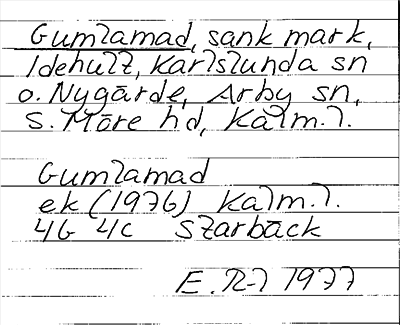 Gumlamad, sank mark,
Idehult, Karlslunda sn
o. Nygärde, Arby sn,
S. Möre hd, Kalm. l.
Gumlamad
ek (1976) Kalm. l.
4G 4c Starbäck
E. 1977